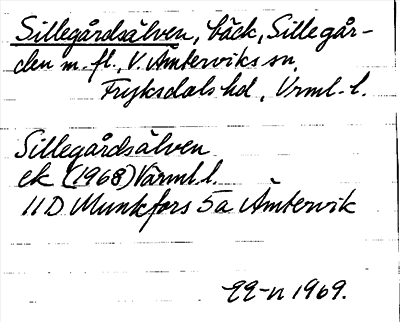 Sillegårdsälven, bäck, Sillegår-
den m.fl., V. Ämterviks sn,
Fryksdals hd, Vrml. l.
Sillegårdsälven
ek (1968) Värml. l.
11D Munkfors 5a Ämtervik
1969.